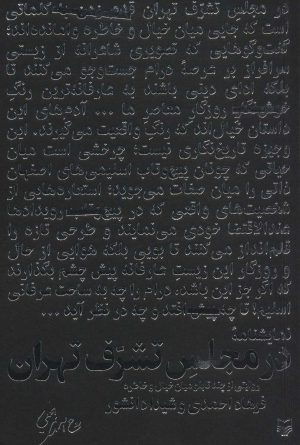 در مجلس تشرف تهران
است که جایی میان خیال و خاطره وامانده‌اند؛
گفت‌وگوهایی که تصویری شاعرانه از زیستی
سرافراز بر عرصهٔ درام جست‌وجو می‌کنند تا
بلکه ادای دینی باشند به عارفانه‌ترین رنگ
روزگار معاصر ما ... آدم‌های این
داستان خیال‌اند که رنگ واقعیت می‌گیرند. این
وجیزه تاریخ‌نگاری نیست؛ چرخشی است میان
حیاتی که چونان پیچ‌وتاب اسلیمی‌های اصفهان
ذاتی را میان صفات می‌جوید؛ استعاره‌هایی از
شخصیت‌های واقعی که در رویدادها
عندالاقتضا خودی می‌نمایند و طرحی تازه را
قلم‌انداز می‌کنند تا بویی بلکه هوایی از حال
و روزگار این زیست عارفانه پیش چشم بگذارند
که اگر جز این باشد، درام را چه به ساحت عرفانی
و چه در نظر آید ...
نمایشنامهٔ
در مجلس تشرف تهران
روایتی از چند تابلو میان خیال و خاطره
فرهاد احمدی و شیداد انشور